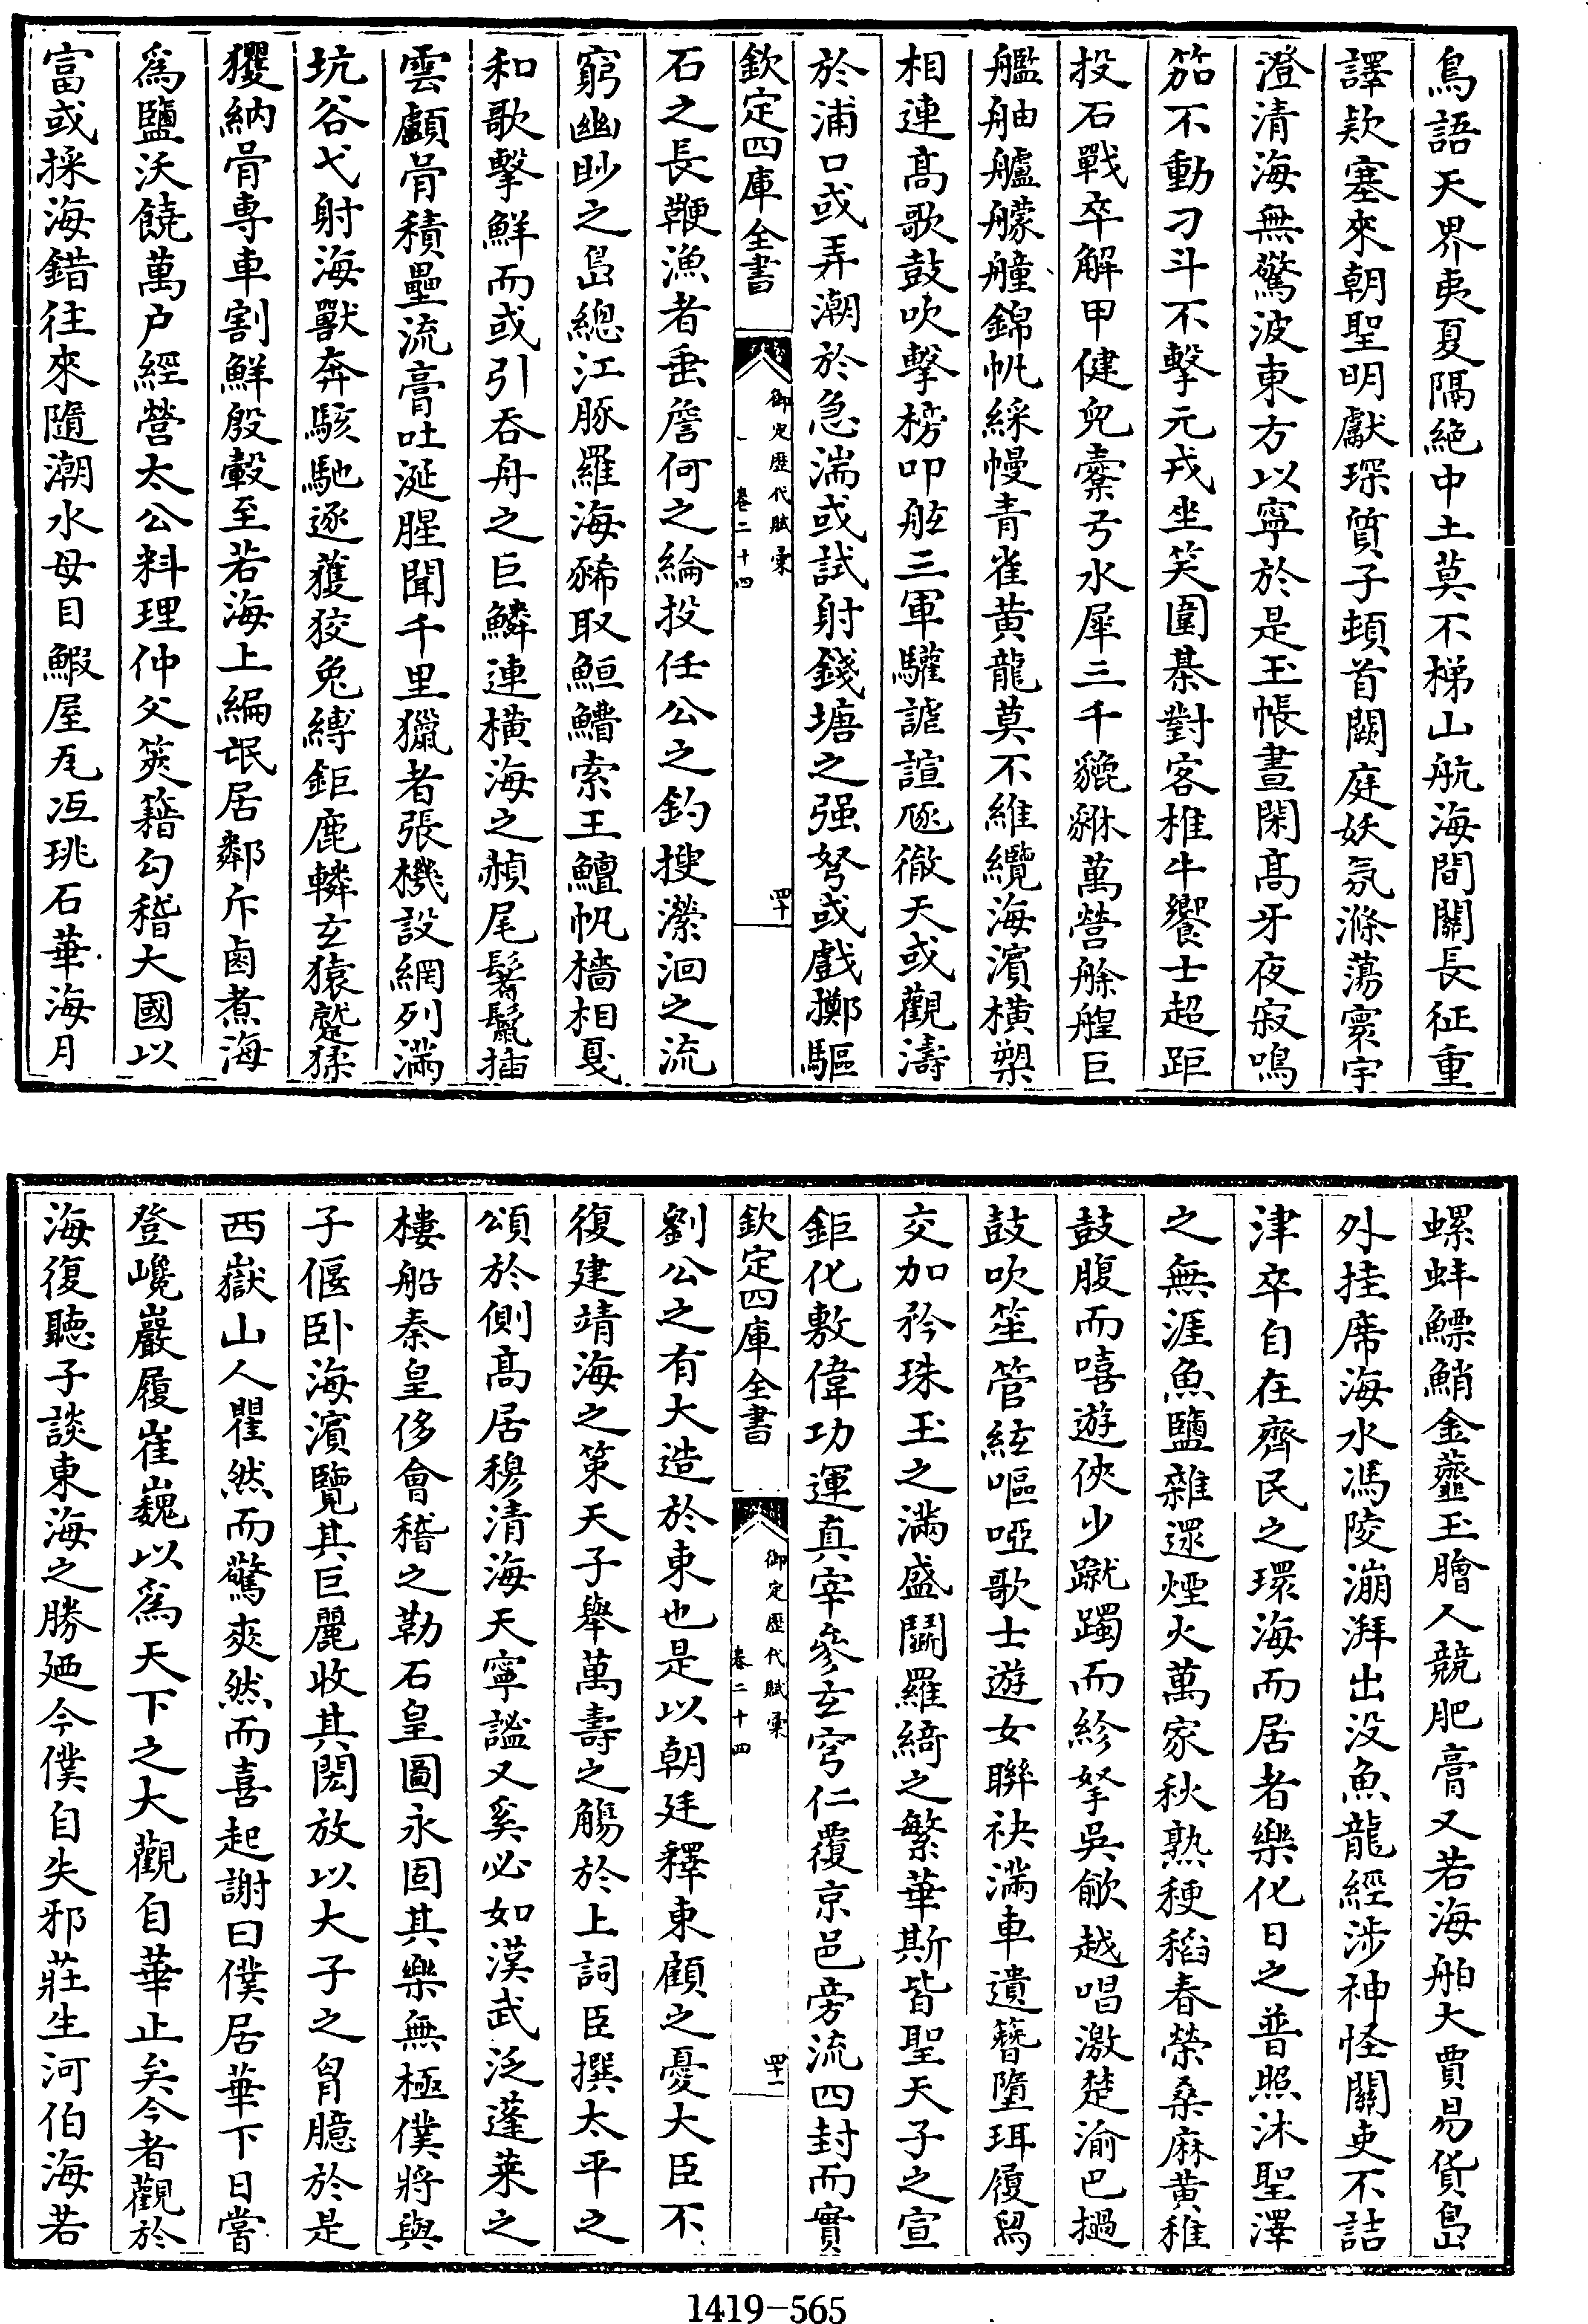 鳥語天界夷夏隔絶中土莫不梯山航海間關長征重
譯欵塞來朝聖明獻琛質子頓首闕庭妖氛滌蕩寰宇
澄清海無驚波東方以寧於是玉帳晝閑髙牙夜寂鳴
笳不動刁斗不擊元戎坐笑圍棊對客椎牛饗士超距
投石戰卒解甲健兒櫜弓水犀三千貔貅萬營艅艎巨
艦舳艫艨艟錦帆綵幔青雀黄龍莫不維纜海濱横槊
相連髙歌鼓吹擊榜叩舷三軍驩謔諠豗徹天或觀濤
於浦口或弄潮於急湍或試射錢塘之强弩或戲擲驅
欽定四庫全書
御定歴代賦彙
卷二十四
四十
石之長鞭漁者垂詹何之綸投任公之釣搜瀠洄之流
窮幽眇之島總江豚羅海豨取鮔鱛索王鱣帆檣相戛
和歌擊鮮而或引吞舟之巨鱗連横海之赬尾鬐鬣插
雲顱骨積壘流膏吐涎腥聞千里獵者張機設網列滿
坑谷弋射海獸奔駭馳逐蒦狡兔縛鉅鹿轔玄猿蹵猱
玃納骨専車割鮮殷轂至若海上編氓居鄰斥鹵煮海
為鹽沃饒萬户經營太公料理仲父筴籍勾稽大國以
富或採海錯往來隨潮水母目鰕屋瓦冱珧石華海月
螺蚌鰾鮹金虀玉膾人競肥膏又若海舶大賈易貨島
外挂席海水馮陵漰湃出没魚龍經渉神怪關吏不詰
津卒自在齊民之環海而居者樂化日之普照沐聖澤
之無涯魚鹽雜遝煙火萬家秋熟稉稻春榮桑麻黄稚
鼓腹而嘻遊俠少蹴躅而紾拏吳歈越唱激楚渝巴撾
鼓吹笙管絃嘔啞歌士遊女聯袂滿車遺簪墮珥履舄
交加矜珠玉之滿盛鬬羅綺之繁華斯皆聖天子之宣
鉅化敷偉功運真宰參玄穹仁覆京邑旁流四封而實
欽定四庫全書
御定歴代賦彙
卷二十四
四十一
劉公之有大造於東也是以朝廷釋東顧之憂大臣不
復建靖海之策天子舉萬壽之觴於上詞臣撰太平之
頌於側髙居穆清海天寧謐又奚必如漢武泛蓬萊之
樓船秦皇侈會稽之勒石皇圖永固其樂無極僕將與
子偃卧海濱覽其巨麗收其閎放以大子之胷臆於是
西嶽山人瞿然而驚爽然而喜起謝曰僕居華下日嘗
登巉巖履崔巍以為天下之大觀自華止矣今者觀於
海復聽子談東海之勝廼今僕自失邪莊生河伯海若
1419-565